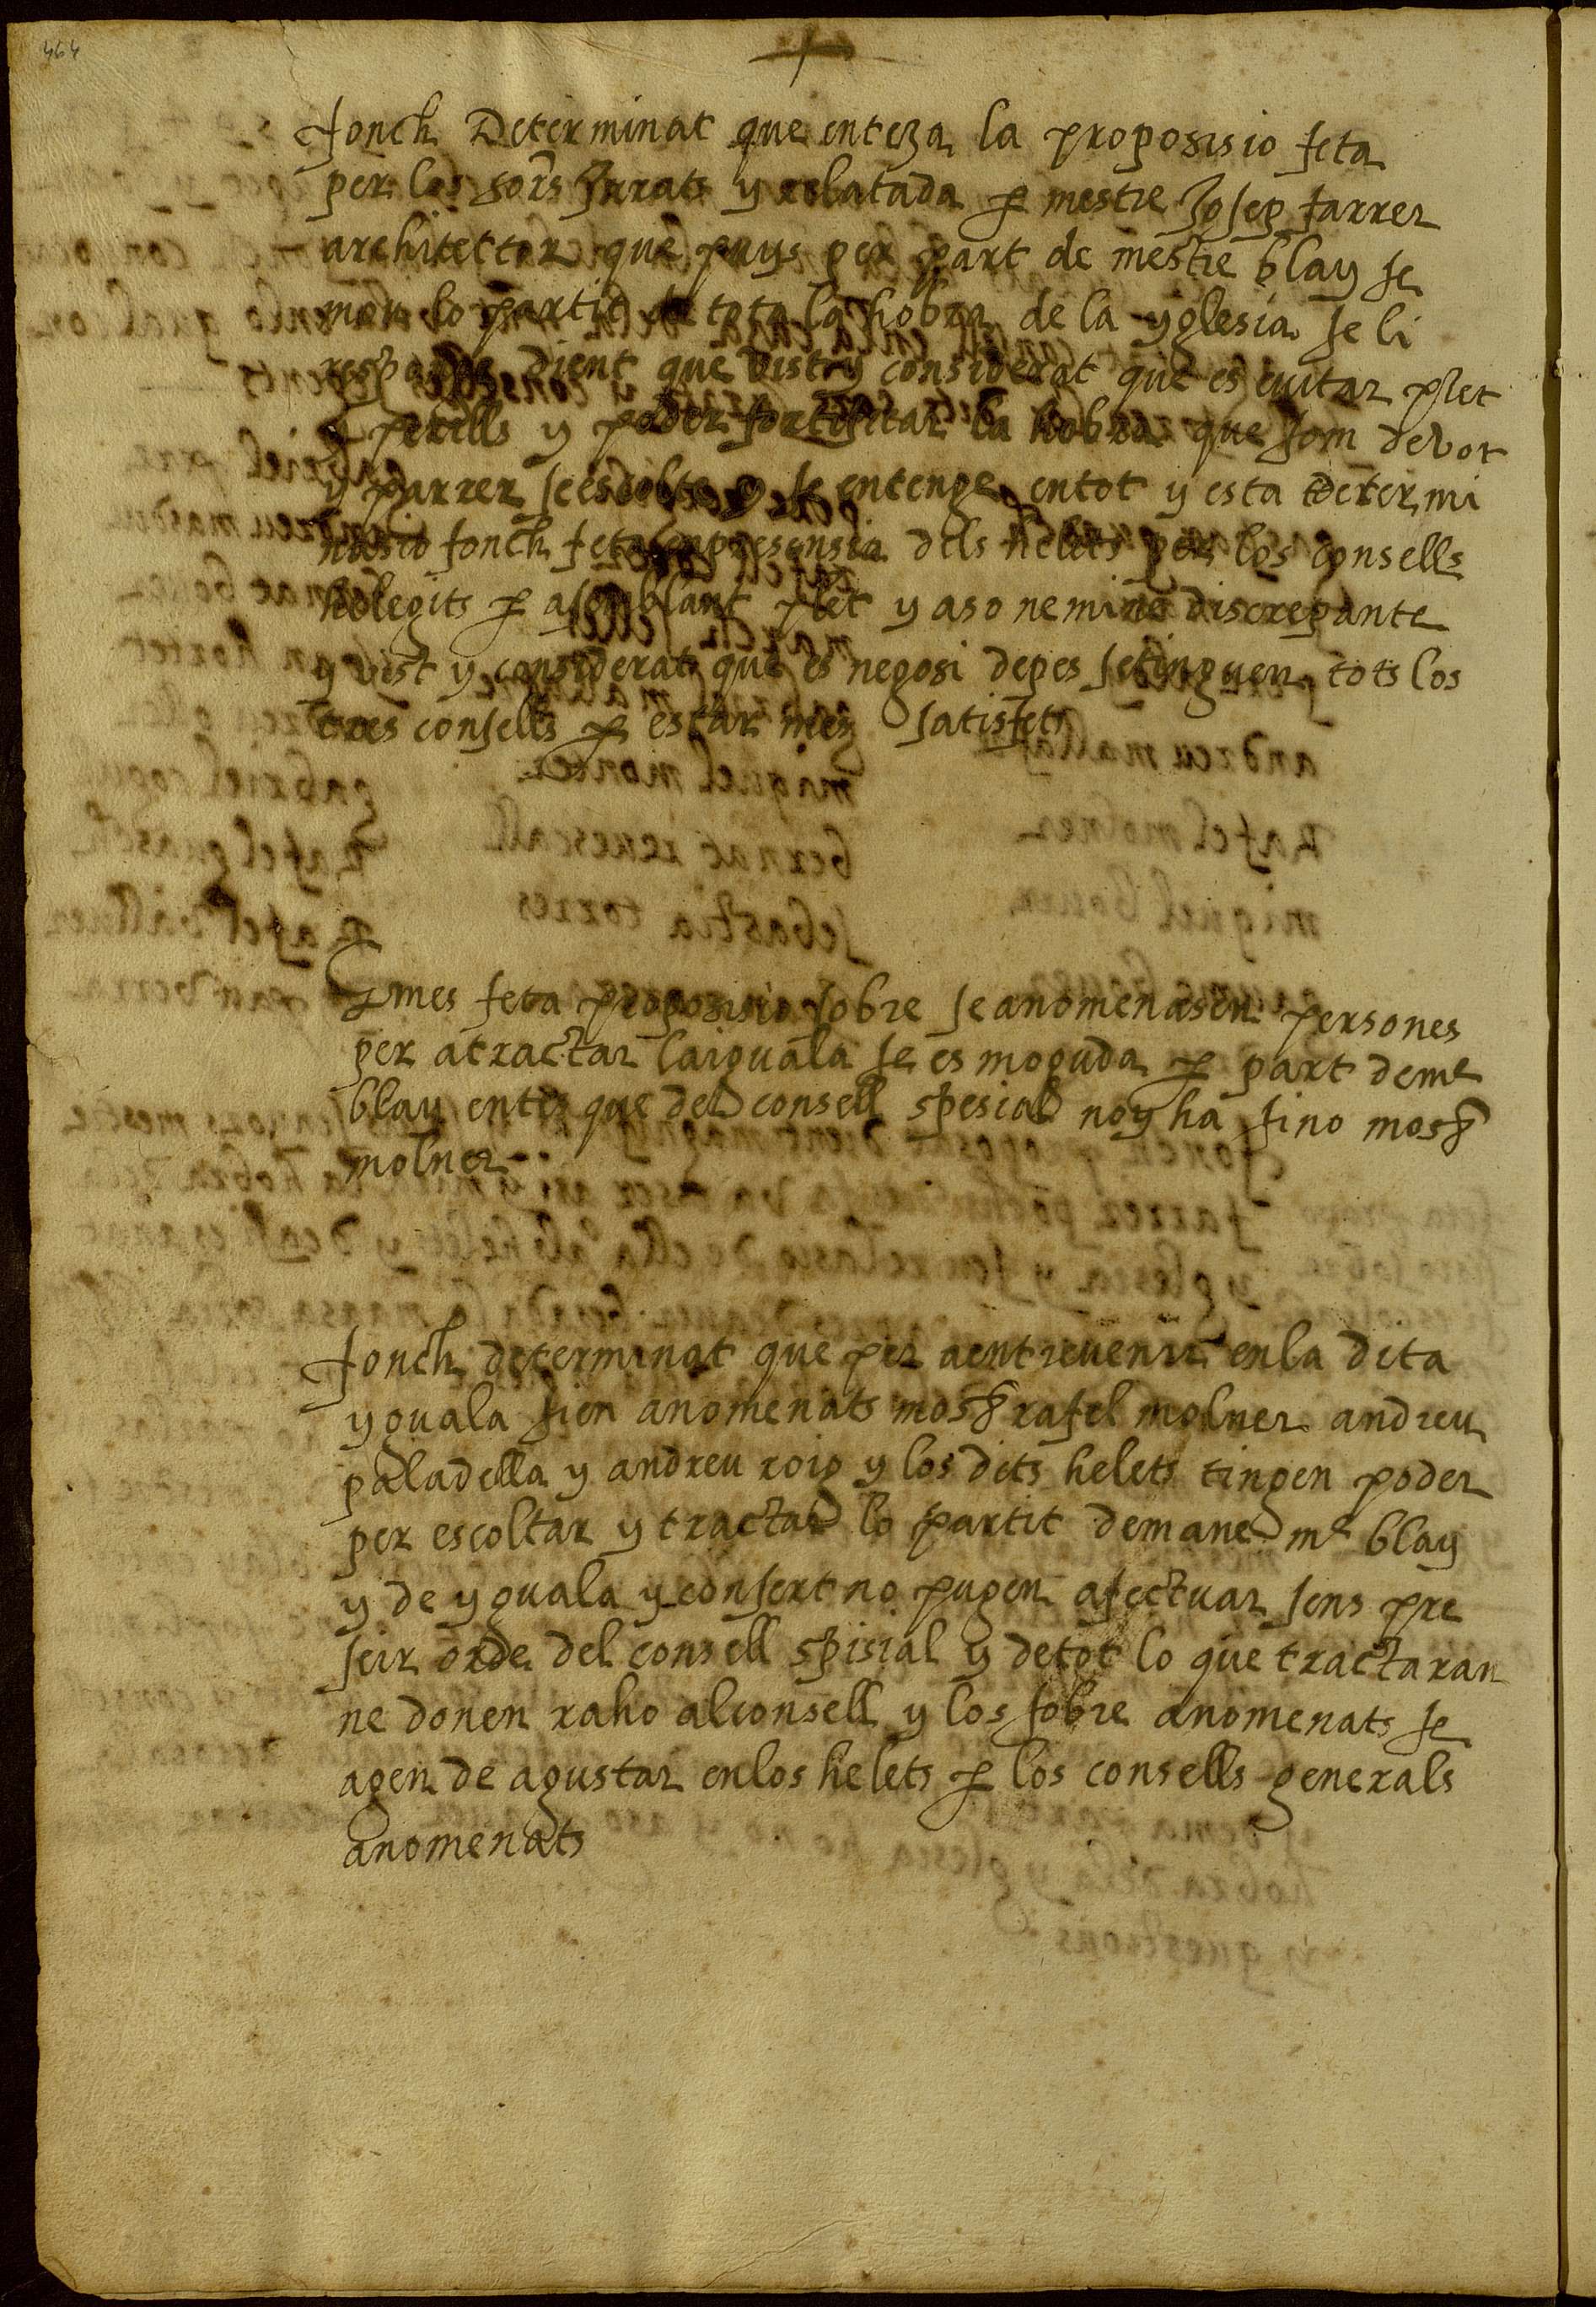 464
fonch Determinat que enteza la proposisio feta
per los sors Jurats y relatada p mestre Josep farrer
architector que puys per part de mestre blay se
mou lo partit de tota la hobra de la yglesia se li
respongue dient que vist y considerat que es evitar plet
y perills y poder fortificar la hobra que som de vot
y parrer se escolte y se entenge entot y esta determi
nasio fonch feta en presensia dels helets per los consells
helegits p asemblant plet y aso nemine discrepante
y vist y considerat que es negosi de pes se tinguen tots los
tres consells p estar mes satisfets
y mes feta proposisio sobre se anomenasen persones
per atractar laiguala se es moguda p part de me
blay entes que del consell spesial noy ha sino moss
molner
fonch determinat que per aentrevenir enla dita
yguala sien anomenats moss rafel molner andreu
paladella y andreu roig y los dits helets tingen poder
per escoltar y tractar lo partit demane me blay
y de yguala y consert no pugen afectuar sens pre
seir orde del consell spisial y detot lo que tractaran
ne donen raho alconsell y los sobre anomenats se
agen de agustar enlos helets p los consells generals
anomenats